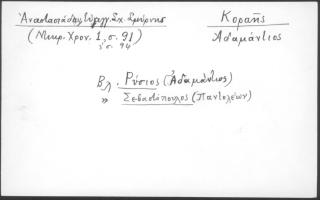 Ἀναστασιάδης, Εὐαγγ. Σχ. Σμύρνης
(Μικρ. Χρον. 1, σ. 91)
σ. 94
Κοραῆς
Ἀδαμάντιος
Βλ. Ρύσιος (Ἀδαμάντιος)
» Σεβαστόπουλος (Πανταλέων)